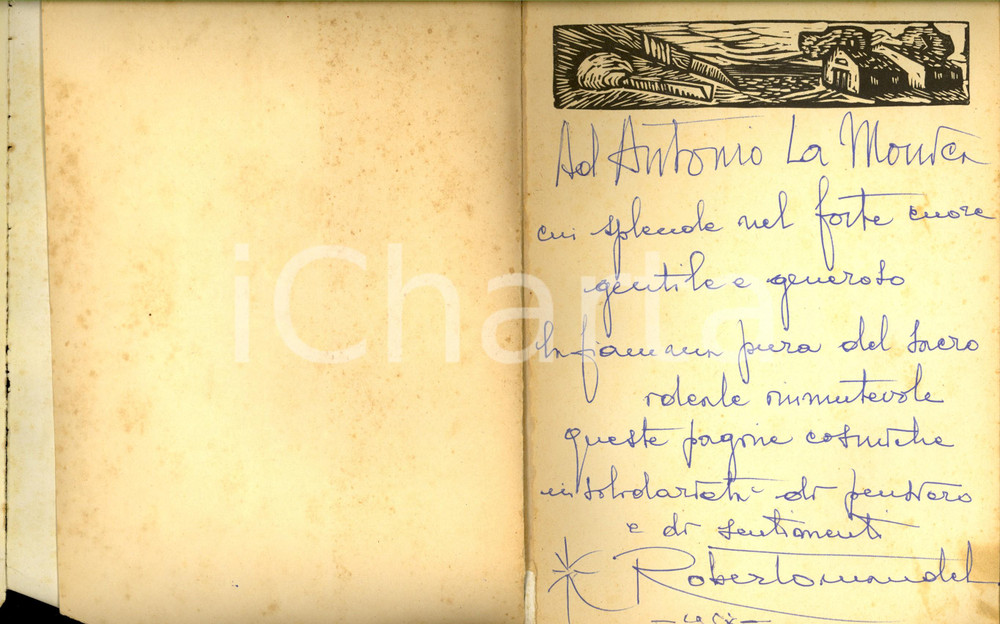 Ad Antonio La Monica
cui splende nel forte cuore
gentile e generoso
la fiamma pura del sacro
ideale immutevole
queste pagine cosmiche
in solidarietà di pensiero
e di sentimenti
Roberto Mandel
iCharta